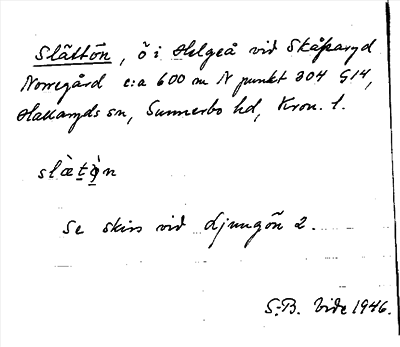 Slättön, ö i Helgeå vid Skåparyd
Norregård c:a 600 m N punkt 204 G14,
Hallaryds sn, Sunnerbo hd, Kron. l.
slä̀tø̀n
Se skiss vid Djurgön 2.
S:B. Vide 1946.